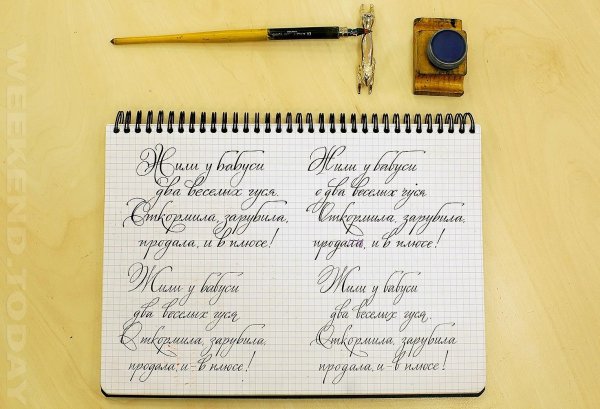 WEEKEND.TODAY
Жили у бабуси
два веселых гуся
Откормила, зарубила,
продала, и в плюсе!
Жили у бабуси
о два веселых гуся
Откормила, зарубила,
продала, и в плюсе!
Жили у бабуси
два веселых гуся
Откормила, зарубила,
продала, и в плюсе!
Жили у бабуси
два веселых гуся.
Откормила, зарубила
продала, и в плюсе!